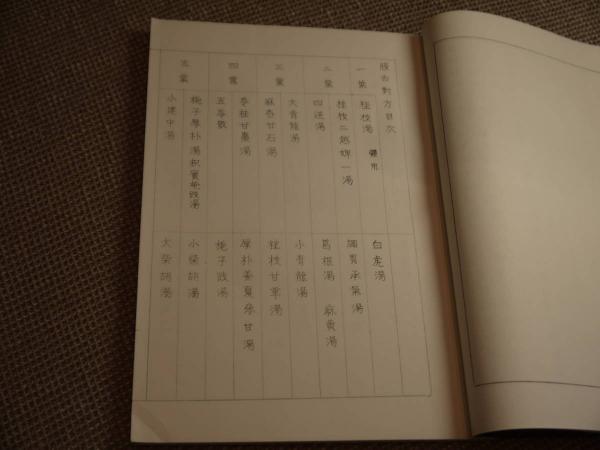 腹舌對方目次
一葉
桂枝湯
白虎湯
桂枝二越婢一湯
調胃承氣湯
二葉
四逆湯
葛根湯 麻黄湯
大青龍湯
小青龍湯
三葉
麻杏甘石湯
桂枝甘草湯
苓桂甘棗湯
厚朴姜夏參甘湯
四葉
五苓散
梔子豉湯
梔子厚朴湯枳實梔豉湯
小柴胡湯
五葉
小建中湯
大柴胡湯